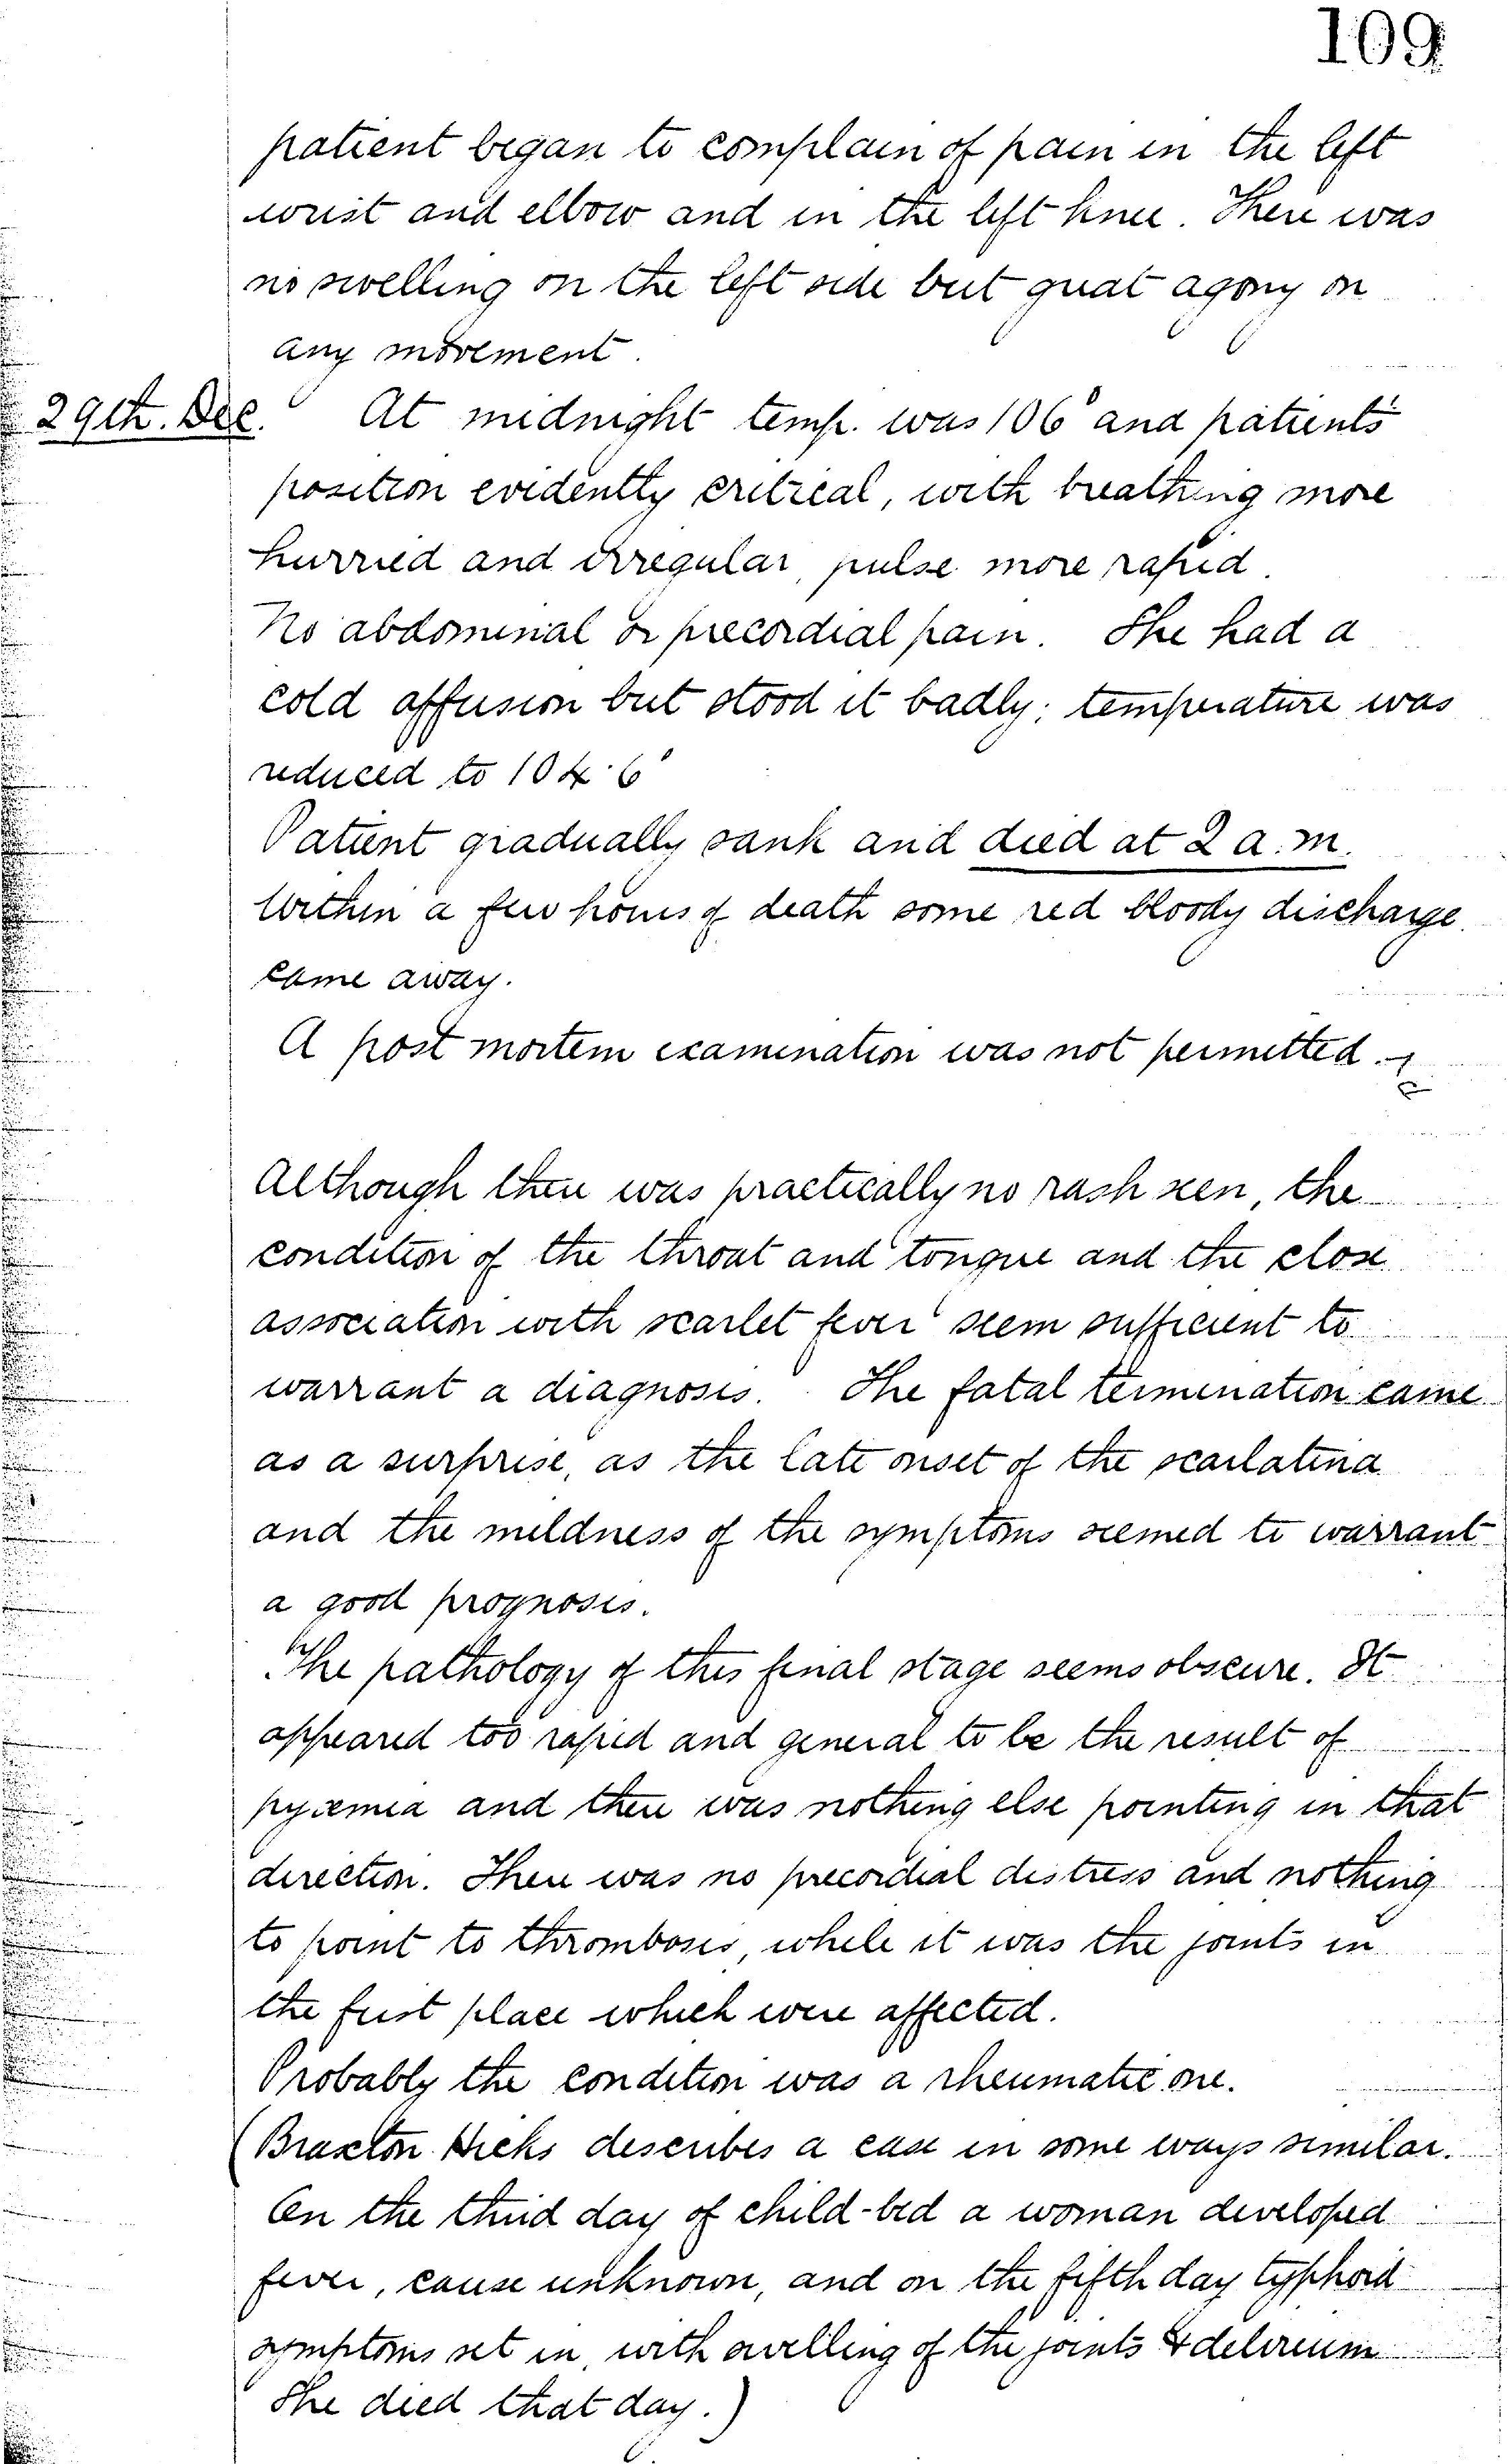 109
patient began to complain of pain in the left
wrist and elbow and in the left knee. There was
no swelling on the left side but great agony on
any movement.
29th. Dec. At midnight temp. was 106° and patients
position evidently critical, with breathing more
hurried and irregular, pulse more rapid.
No abdominal or precordial pain. She had a
cold affusion but stood it badly; temperature was
reduced to 104.6°
Patient gradually sank and died at 2 a.m.
Within a few hours of death some red bloody discharge
came away.
A post mortem examination was not permitted.
Although there was practically no rash seen, the
condition of the throat and tongue and the close
association with scarlet fever seem sufficient to
warrant a diagnosis. The fatal termination came
as a surprise, as the late onset of the scarlatina
and the mildness of the symptoms seemed to warrant
a good prognosis.
The pathology of this final stage seems obscure. It
appeared too rapid and general to be the result of
pyæmia and there was nothing else pointing in that
direction. There was no precordial distress and nothing
to point to thrombosis, while it was the joints in
the first place which were affected.
Probably the condition was a rheumatic one.
(Braxton Hicks describes a case in some ways similar.
On the third day of child-bed a woman developed
fever, cause unknown, and on the fifth day typhoid
symptoms set in, with swelling of the joints & delirium
She died that day.)